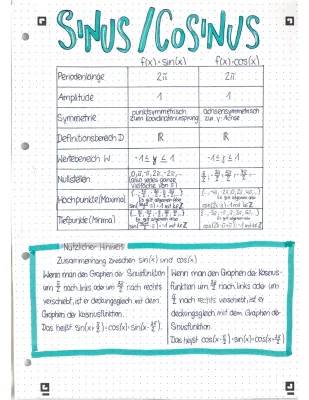 SINUS/COSINUS
f(x)=sin(x) f(x)=cos(x)
Periodenlänge 2π 2π
Amplitude 1 1
Symmetrie punktsymmetrisch zum Koordinatenursprung achsensymmetrisch zur y-Achse
Definitionsbereich D ℝ ℝ
Wertebereich W -1≤y≤1 -1≤y≤1
Nullstellen
Hochpunkte (Maxima)
Tiefpunkte (Minima)
Nützlicher Hinweis
Zusammenhang zwischen sin(x) und cos(x)
Wenn man den Graphen der Sinusfunktion
um π/2 nach links oder um 3π/2 nach rechts
verschiebt, ist er deckungsgleich mit dem
Graphen der Kosinusfunktion.
Das heißt sin(x+π/2)=cos(x)=sin(x-3π/2).
Wenn man den Graphen der Kosinus-
funktion um 3π/2 nach links oder um
π/2 nach rechts verschiebt, ist er
deckungsgleich mit dem Graphen der
Sinusfunktion.
Das heißt cos(x-π/2)=sin(x)=cos(x+3π/2)